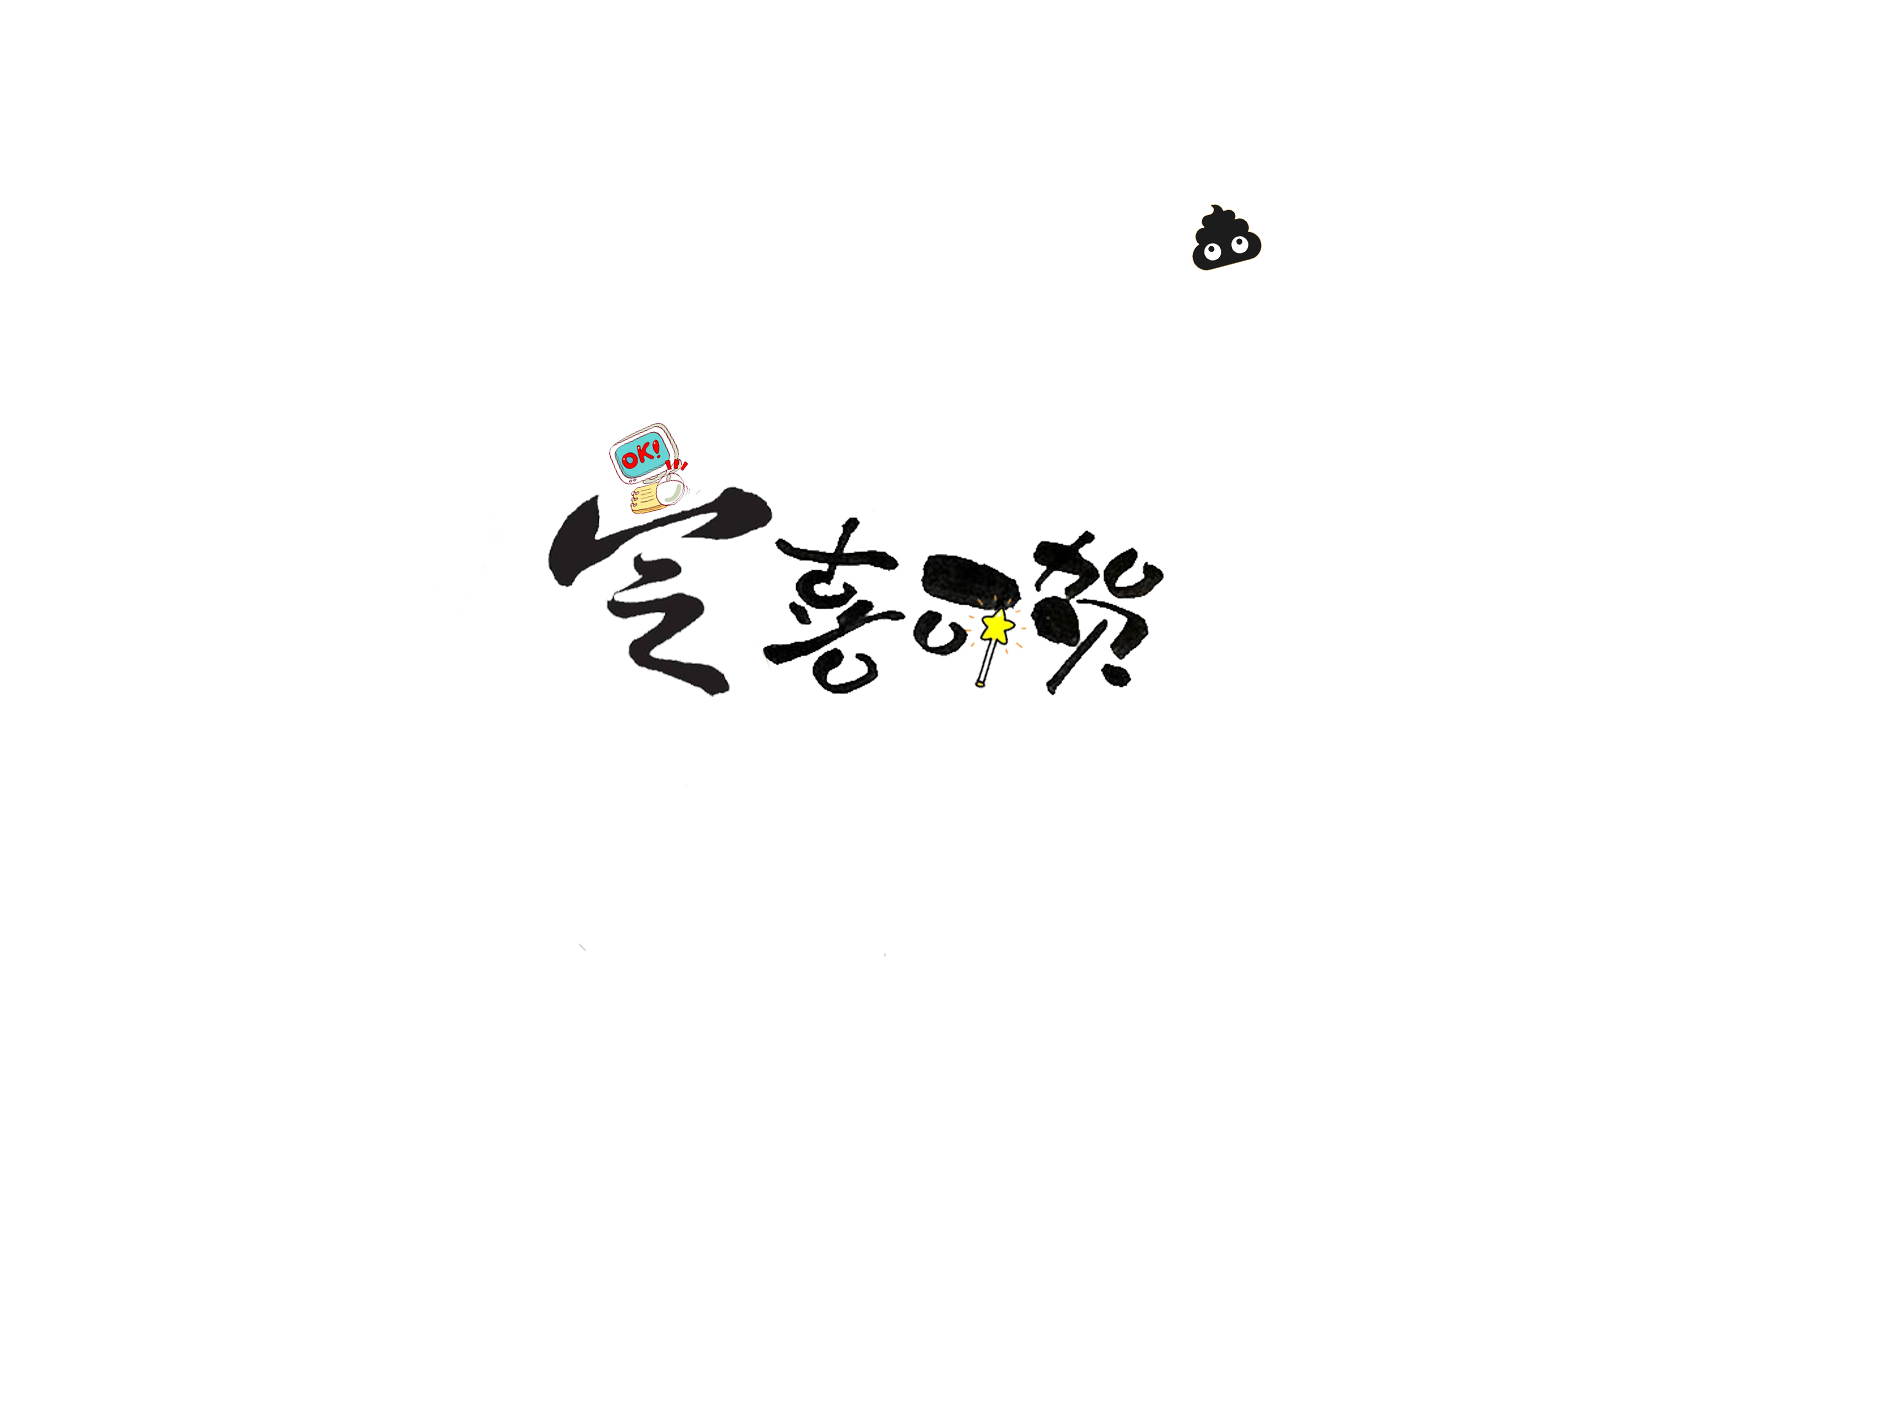 OK!
定喜可贺